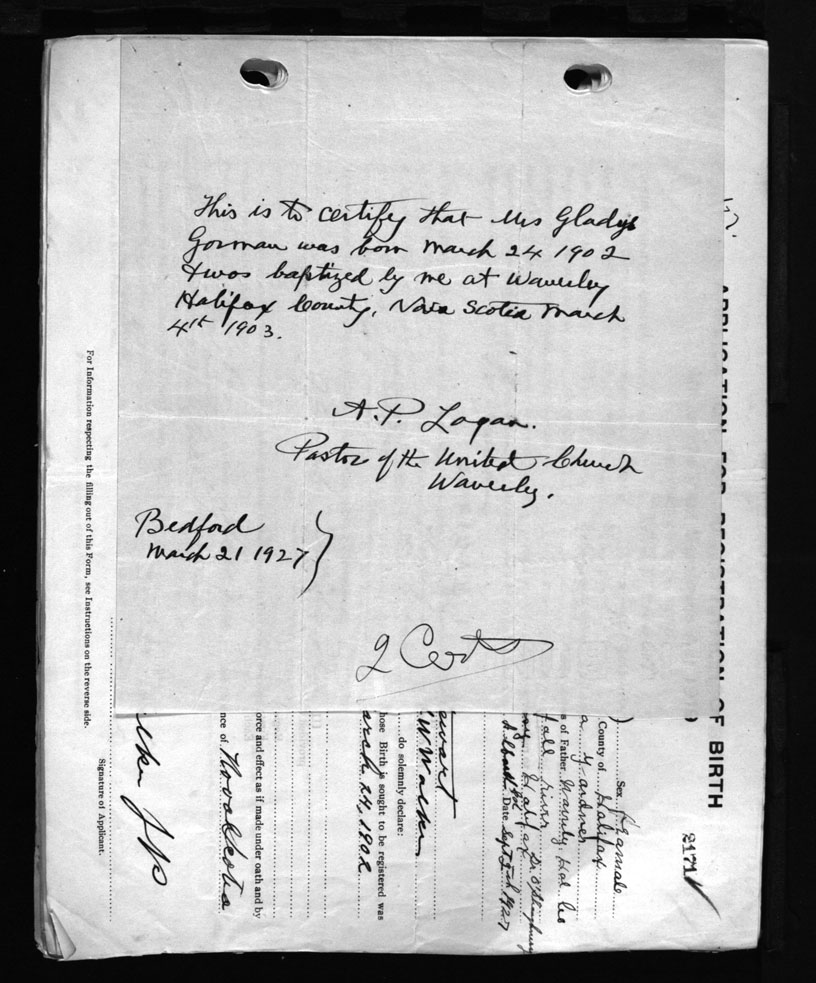 This is to certify that Mrs Gladys
Gorman was born March 24 1902
& was baptized by me at Waverley
Halifax County, Nova Scotia March
4th 1903.
A. P. Logan.
Pastor of the United Church
Waverley.
Bedford
March 21 1927
2 Certs
APPLICATION FOR REGISTRATION OF BIRTH
21711
Sex
County of Halifax
Gardner
s of Father Waverly, Hal Co
Halifax
Date Sept 2 1927
ewart
W Walker
do solemnly declare:
hose Birth is sought to be registered was
arch 24, 1902
orce and effect as if made under oath and by
nce of Nova Scotia
lker JP
Signature of Applicant.
For Information respecting the filling out of this Form, see Instructions on the reverse side.